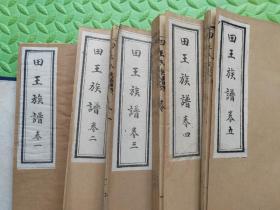 田王族譜卷一
田王族譜卷二
田王族譜卷三
田王族譜卷四
田王族譜卷五